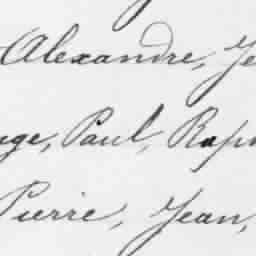 Alexandre, Je
ge, Paul, Rap
Pierre, Jean,